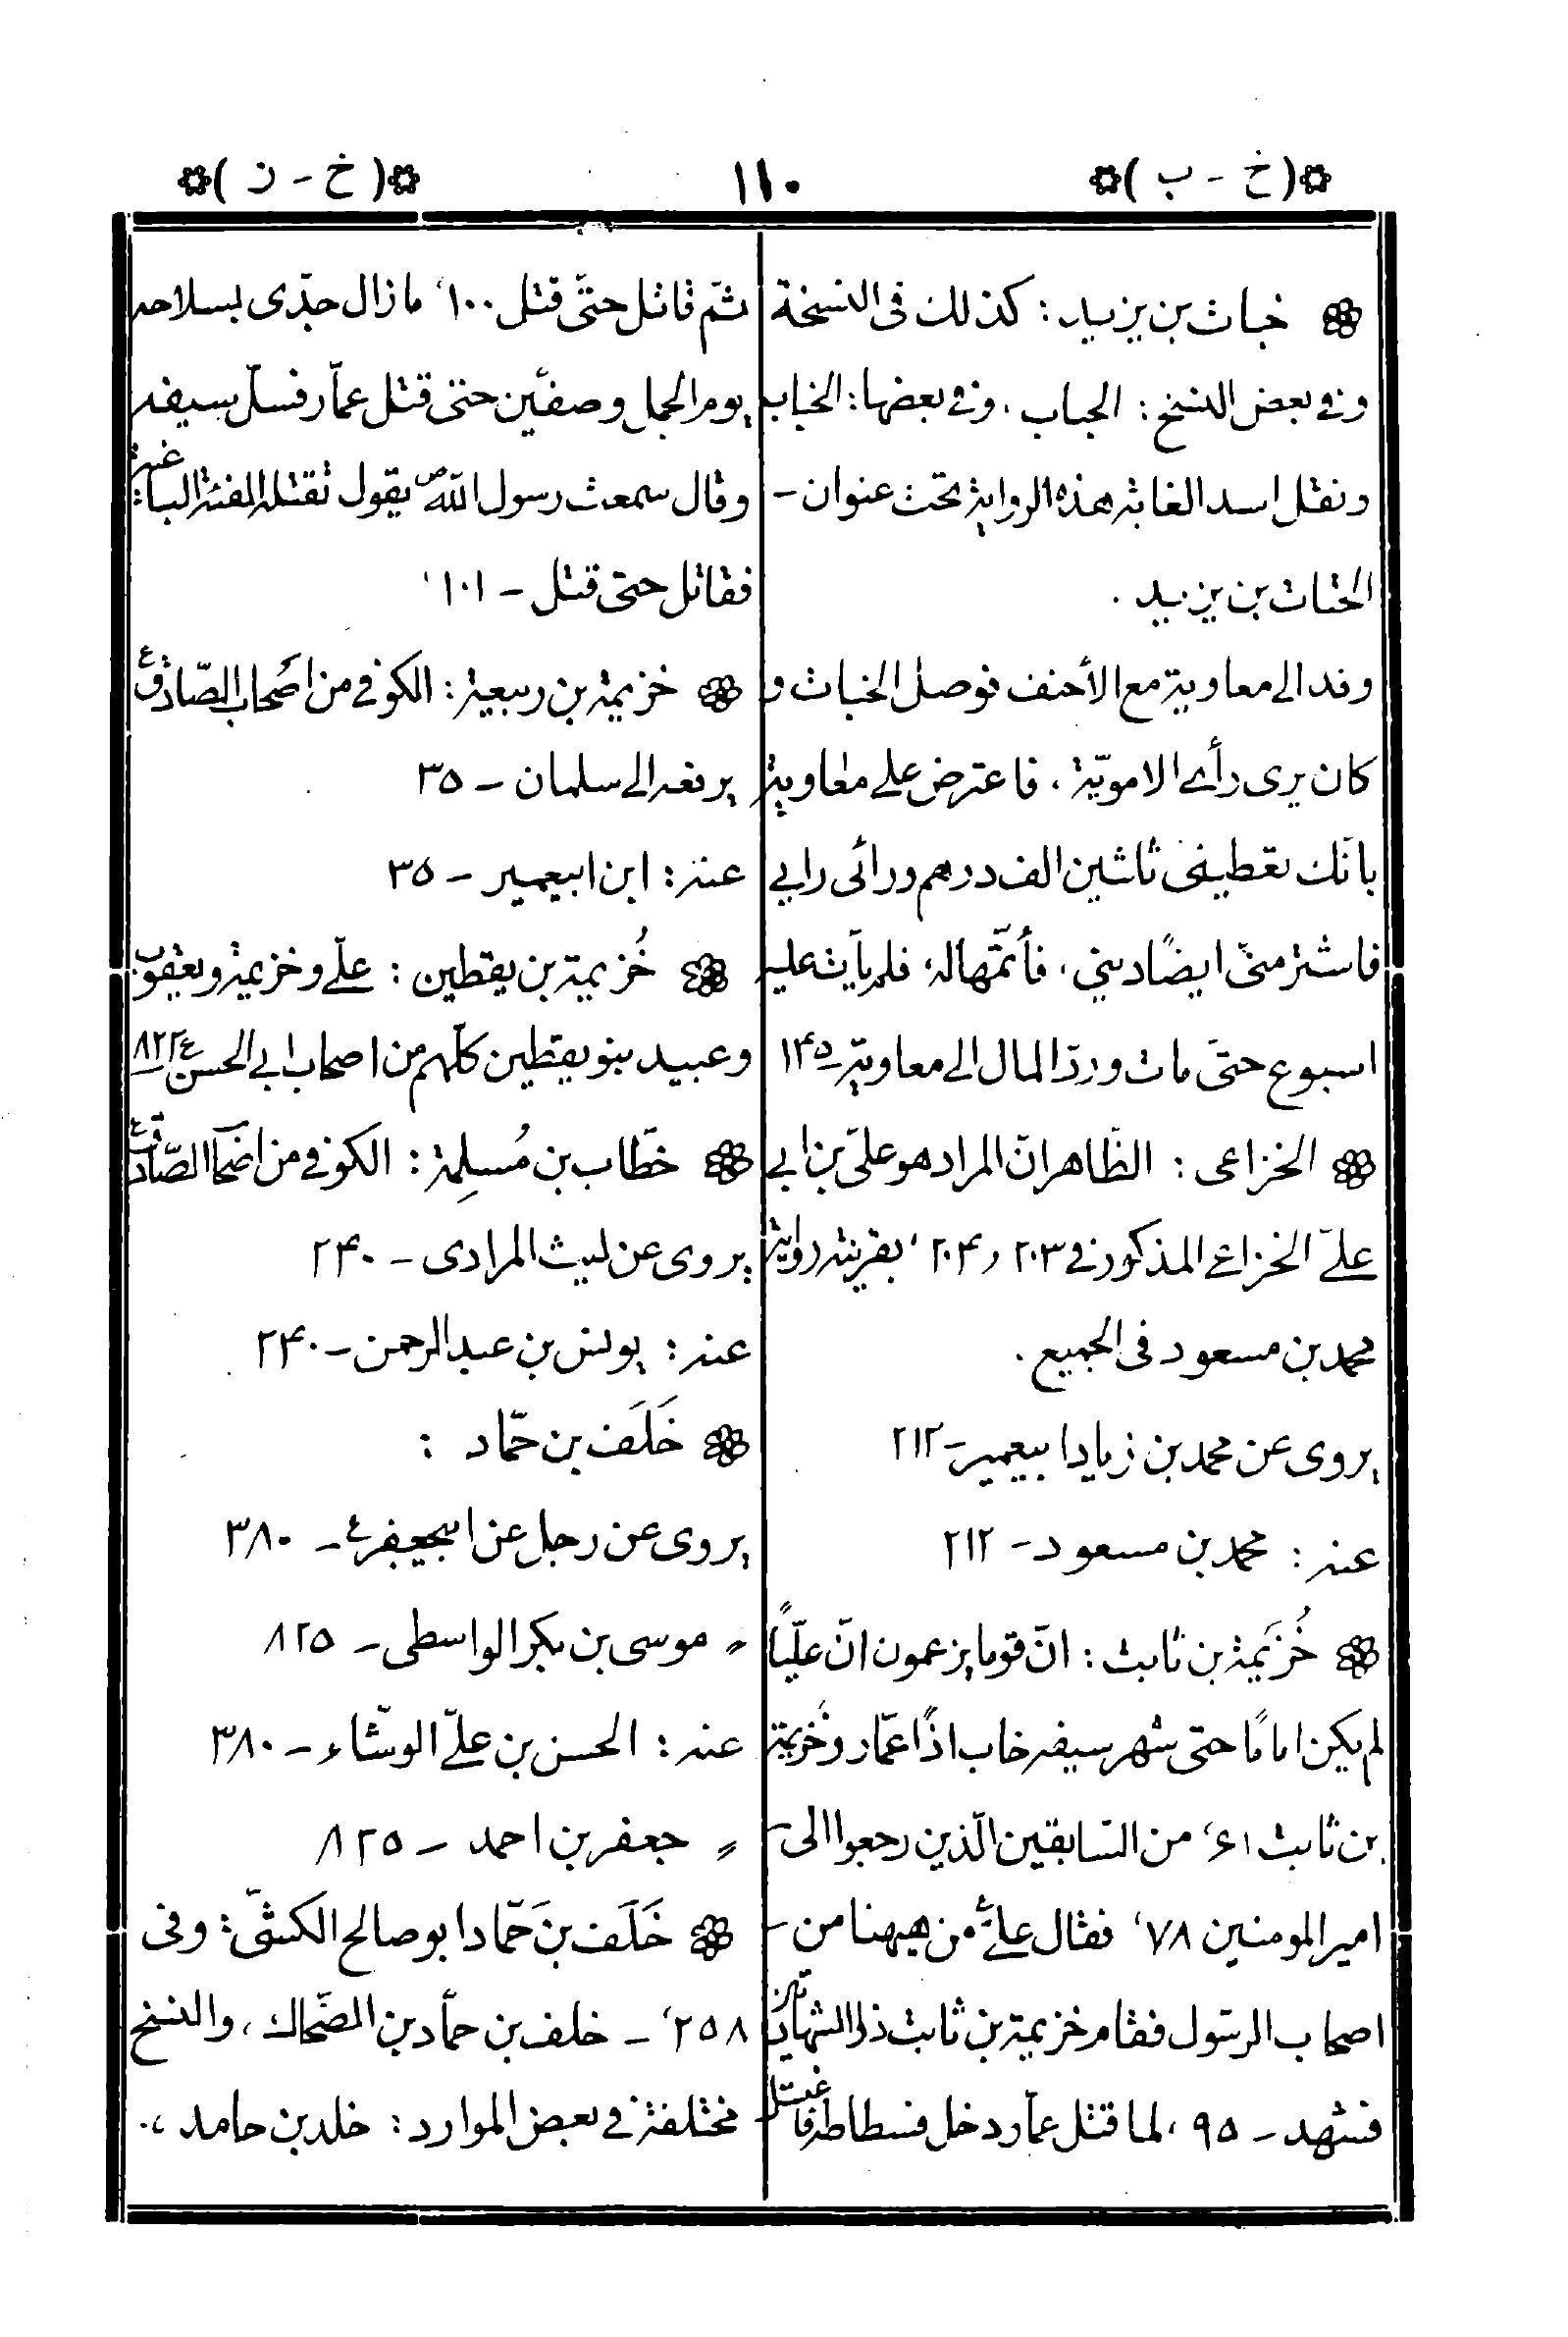 ❁( خ - ب )❁
١١٠
❁( خ - ز )❁
❁ خباث بن یزید : کذلك فی النسخة
وفی بعض النسخ : الحباب ، وفی بعضها : الخباب
ونقل اسد الغابة هذه الروایة تحت عنوان -
الحتات بن یزید .
وفد الی معاویة مع الأحنف فوصل الخباث و
کان یری رأی الامویّة ، فاعترض علی معاویة
بانّك تعطینی ثلاثین الف درهم ورائی رایی
فاشتر منّی ایضًا دینی ، فأتمّها له ، فلم یأت علیه
اسبوع حتّی مات وردّ المال الی معاویة - ١۴۵
❁ الخزاعی : الظّاهر انّ المراد هو علیّ بن ابی
علیّ الخزاعی المذکور فی ٢٠٣ و ٢٠۴ ، بقرینة روایة
محمد بن مسعود فی الجمیع .
یروی عن محمد بن زیاد ابیعمیر - ٢١٢
عنه : محمد بن مسعود - ٢١٢
❁ خُزَیمة بن ثابت : انّ قوما یزعمون انّ علیًّا
لم یکن امامًا حتی شهر سیفه خاب اذًا عمّار وخُزیمة
بن ثابت ۶١ ، من السّابقین الّذین رجعوا الی -
امیر المومنین ٧٨ ، فقال علیّ ؑ من هیهنا من -
اصحاب الرسول فقام خزیمة بن ثابت ذو الشهادتین
فشهد - ٩۵ ، لما قتل عمّار دخل فسطاطه فاغتسل
ثمّ قاتل حتّی قتل ١٠٠ ، ما زال جدّی بسلاحه
یوم الجمل وصفّین حتی قتل عمّار فسلّ سیفه
وقال سمعت رسول اللهؐ یقول تقتله الفئة الباغیة
فقاتل حتی قتل - ١٠١ ،
❁ خزیمة بن ربیعة : الکوفی من اصحاب الصّادقؑ
یرفعه الی سلمان - ٣۵
عنه : ابن ابیعمیر - ٣۵
❁ خُزیمة بن یقطین : علیّ وخزیمة ویعقوب
وعبید بنو یقطین کلّهم من اصحاب ابی الحسنؑ - ٨٢٢
❁ خطّاب بن مُسلِمة : الکوفی من اصحاب الصّادقؑ
یروی عن لیث المرادی - ٢۴٠
عنه : یونس بن عبد الرحمن - ٢۴٠
❁ خَلَف بن حمّاد :
یروی عن رجل عن ابیجعفرؑ - ٣٨٠
〃 موسی بن بکر الواسطی - ٨٢۵
عنه : الحسن بن علیّ الوشّاء - ٣٨٠
〃 جعفر بن احمد - ٨٢۵
❁ خَلَف بن حَمّاد ابو صالح الکشّی : وفی
٢۵٨ ، - خلف بن حمّاد بن الضّحاك ، والنسخ
مختلفة فی بعض الموارد : خلد بن حامد ، .